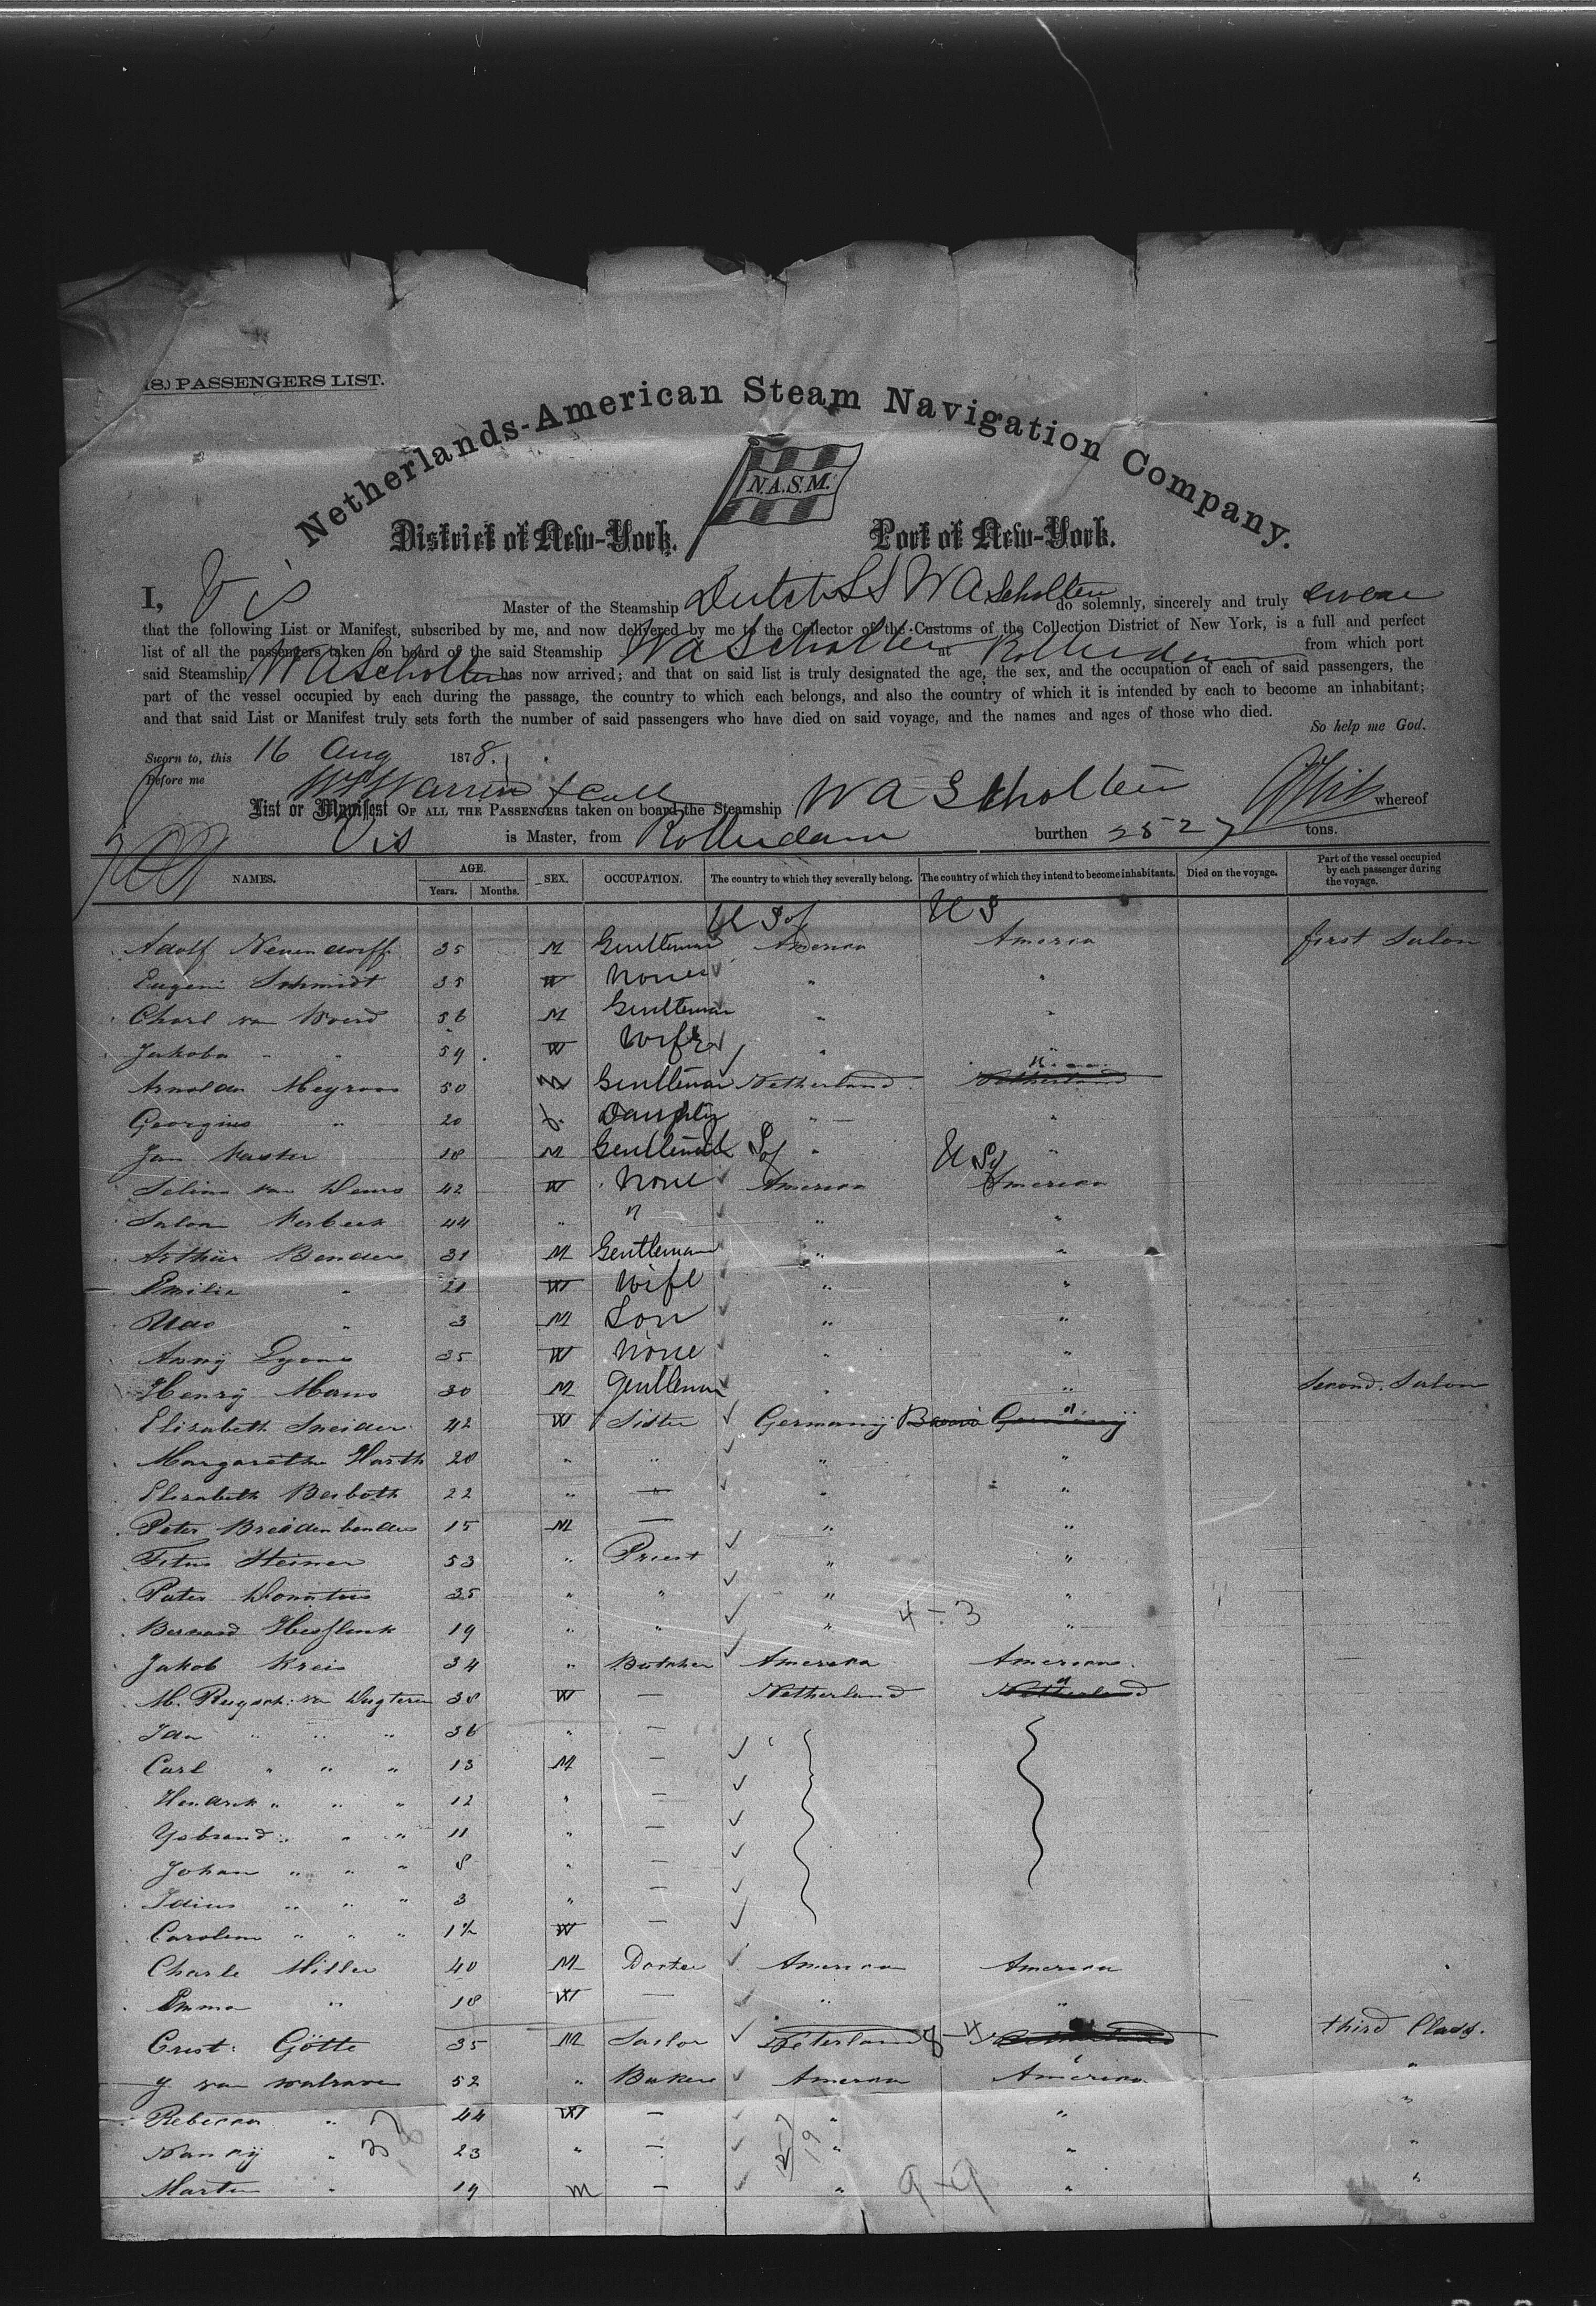 (8.) PASSENGERS LIST.
Netherlands-American Steam Navigation Company.
N.A.S.M.
District of New-York. Port of New-York.
I, Vis Master of the Steamship Dutch SS W A Scholten do solemnly, sincerely and truly swear
that the following List or Manifest, subscribed by me, and now delivered by me to the Collector of the Customs of the Collection District of New York, is a full and perfect
list of all the passengers taken on board of the said Steamship W A Scholten at Rotterdam from which port
said Steamship W A Scholten has now arrived; and that on said list is truly designated the age, the sex, and the occupation of each of said passengers, the
part of the vessel occupied by each during the passage, the country to which each belongs, and also the country of which it is intended by each to become an inhabitant;
and that said List or Manifest truly sets forth the number of said passengers who have died on said voyage, and the names and ages of those who died.
So help me God.
Sworn to, this 16 Aug 1878.
Before me Warren
List or Manifest OF ALL THE PASSENGERS taken on board the Steamship W A Scholten whereof
Vis is Master, from Rotterdam burthen 2527 tons.
NAMES. AGE. Years. Months. SEX. OCCUPATION. The country to which they severally belong. The country of which they intend to become inhabitants. Died on the voyage. Part of the vessel occupied by each passenger during the voyage.
U S of U S
Adolf Neuendorff 35 M Gentleman America America first Salon
Eugenie Schmidt 35 W None " "
Charl van Woerd 56 M Gentleman " "
Jakoba " " 59 W Wife " "
Arnoldu Meyroos 50 M Gentleman Netherland Netherland
Georgine " 20 f. Daughter " "
Jan Kaster 18 M Gentleman " "
U S of U S of
Selina van 42 W None America America
Salom Verbeek 44 " " " "
Arthur Benders 31 M Gentleman " "
Emilie " 21 W Wife " "
Udo " 3 M Son " "
Anny Lyons 35 W None " "
Henry Mans 30 M Gentleman " " Second Salon
Elizabeth Sneider 42 W Sister Germany Germany
Margaretha Harth 28 " " " "
Elizabeth Berboth 22 " " " "
Peter Breidenbender 15 M — " "
Titus Steiner 53 " Priest " "
Pater Donatus 35 " " " "
Bernard Hesslink 19 " " " 4-3 "
Jakob Kreis 34 " Butcher America America
M. Ruysch: van Dugteren 38 W — Netherland Netherland
Ida " " " 36 " —
Carl " " " 13 M —
Hendrik " " " 12 " —
Ysbrand " " " 11 " —
Johan " " " 8 " —
Idius " " " 3 " —
Carolina " " " 1½ W —
Charle Miller 40 M Docter America America
Emma " 18 W — " "
Crist: Götte 35 M Sailor Neterland third Class.
Y van Walraven 52 " Baker America America "
Rebecca " 44 W — " " "
Nancy " 23 " — " " "
Marten " 19 m — " 9-9 " "